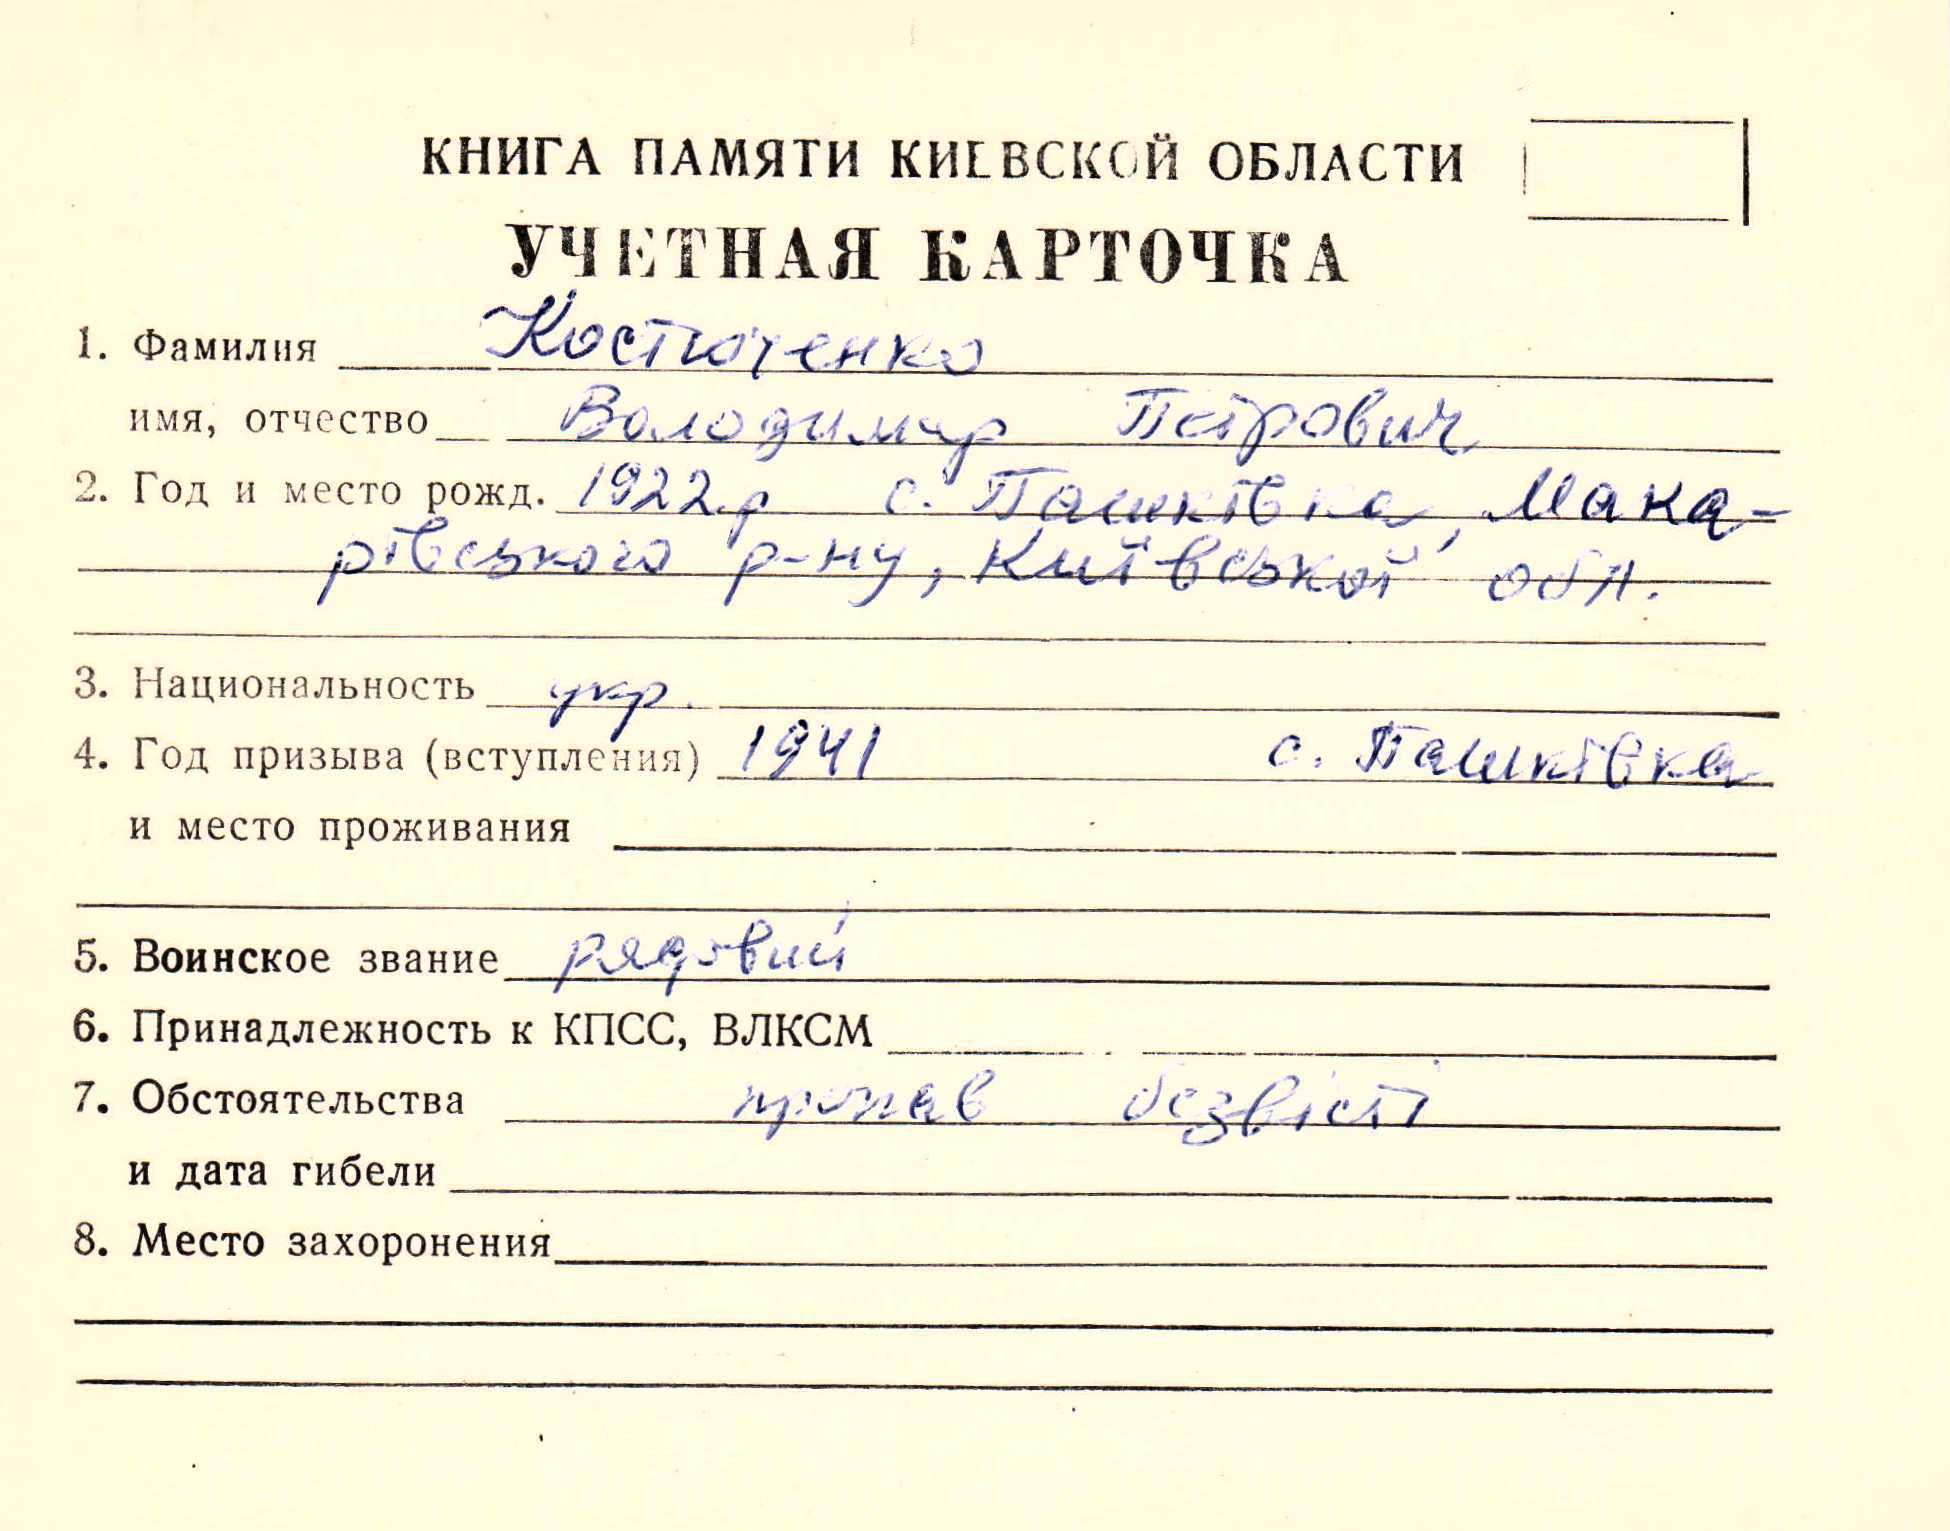 КНИГА ПАМЯТИ КИЕВСКОЙ ОБЛАСТИ
УЧЕТНАЯ КАРТОЧКА
1. Фамилия Костюченко
имя, отчество Володимир Петрович
2. Год и место рожд. 1922 р с. Пашківка, Мака-
рівського р-ну, Київської обл.
3. Национальность укр.
4. Год призыва (вступления) 1941 с. Пашківка
и место проживания
5. Воинское звание рядовий
6. Принадлежность к КПСС, ВЛКСМ
7. Обстоятельства пропав безвісті
и дата гибели
8. Место захоронения